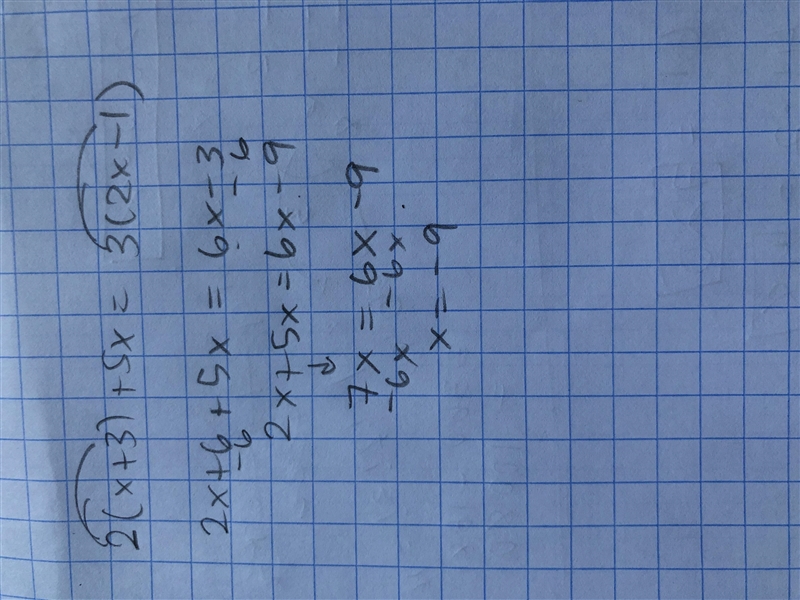 2(x+3)+5x = 3(2x-1)
2x+6+5x = 6x-3
-6 -6
2x+5x=6x-9
7x=6x-9
-6x -6x
x=-9